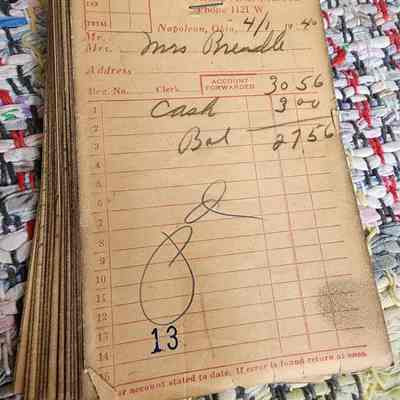 TAX
Phone 1121 W
TOTAL
Napoleon, Ohio, 4/1 1940
Mr.
Mrs. Mrs Brendle
Address
Reg. No. Clerk ACCOUNT FORWARDED 30 56
1 Cash 3 00
2
3 Bal 27,56
4
5
6
7
8
9
10
11
12
13
13
14
15
ur account stated to date. If error is found return at once.